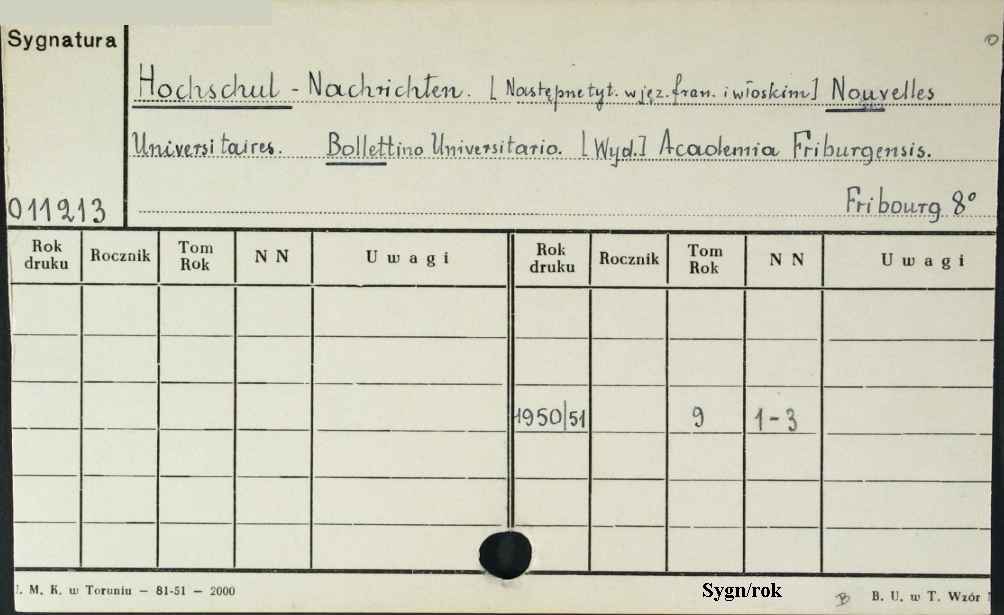 Sygnatura
Hochschul - Nachrichten. [Następne tyt. w jęz. fran. i włoskim] Nouvelles
Universitaires. Bollettino Universitario. [Wyd.] Academia Friburgensis.
011213 Fribourg 8°
Rok druku Rocznik Tom Rok N N Uwagi Rok druku Rocznik Tom Rok N N Uwagi
1950/51 9 1-3
. M. K. w Toruniu — 81-51 — 2000 Sygn/rok B B. U. w T. Wzór